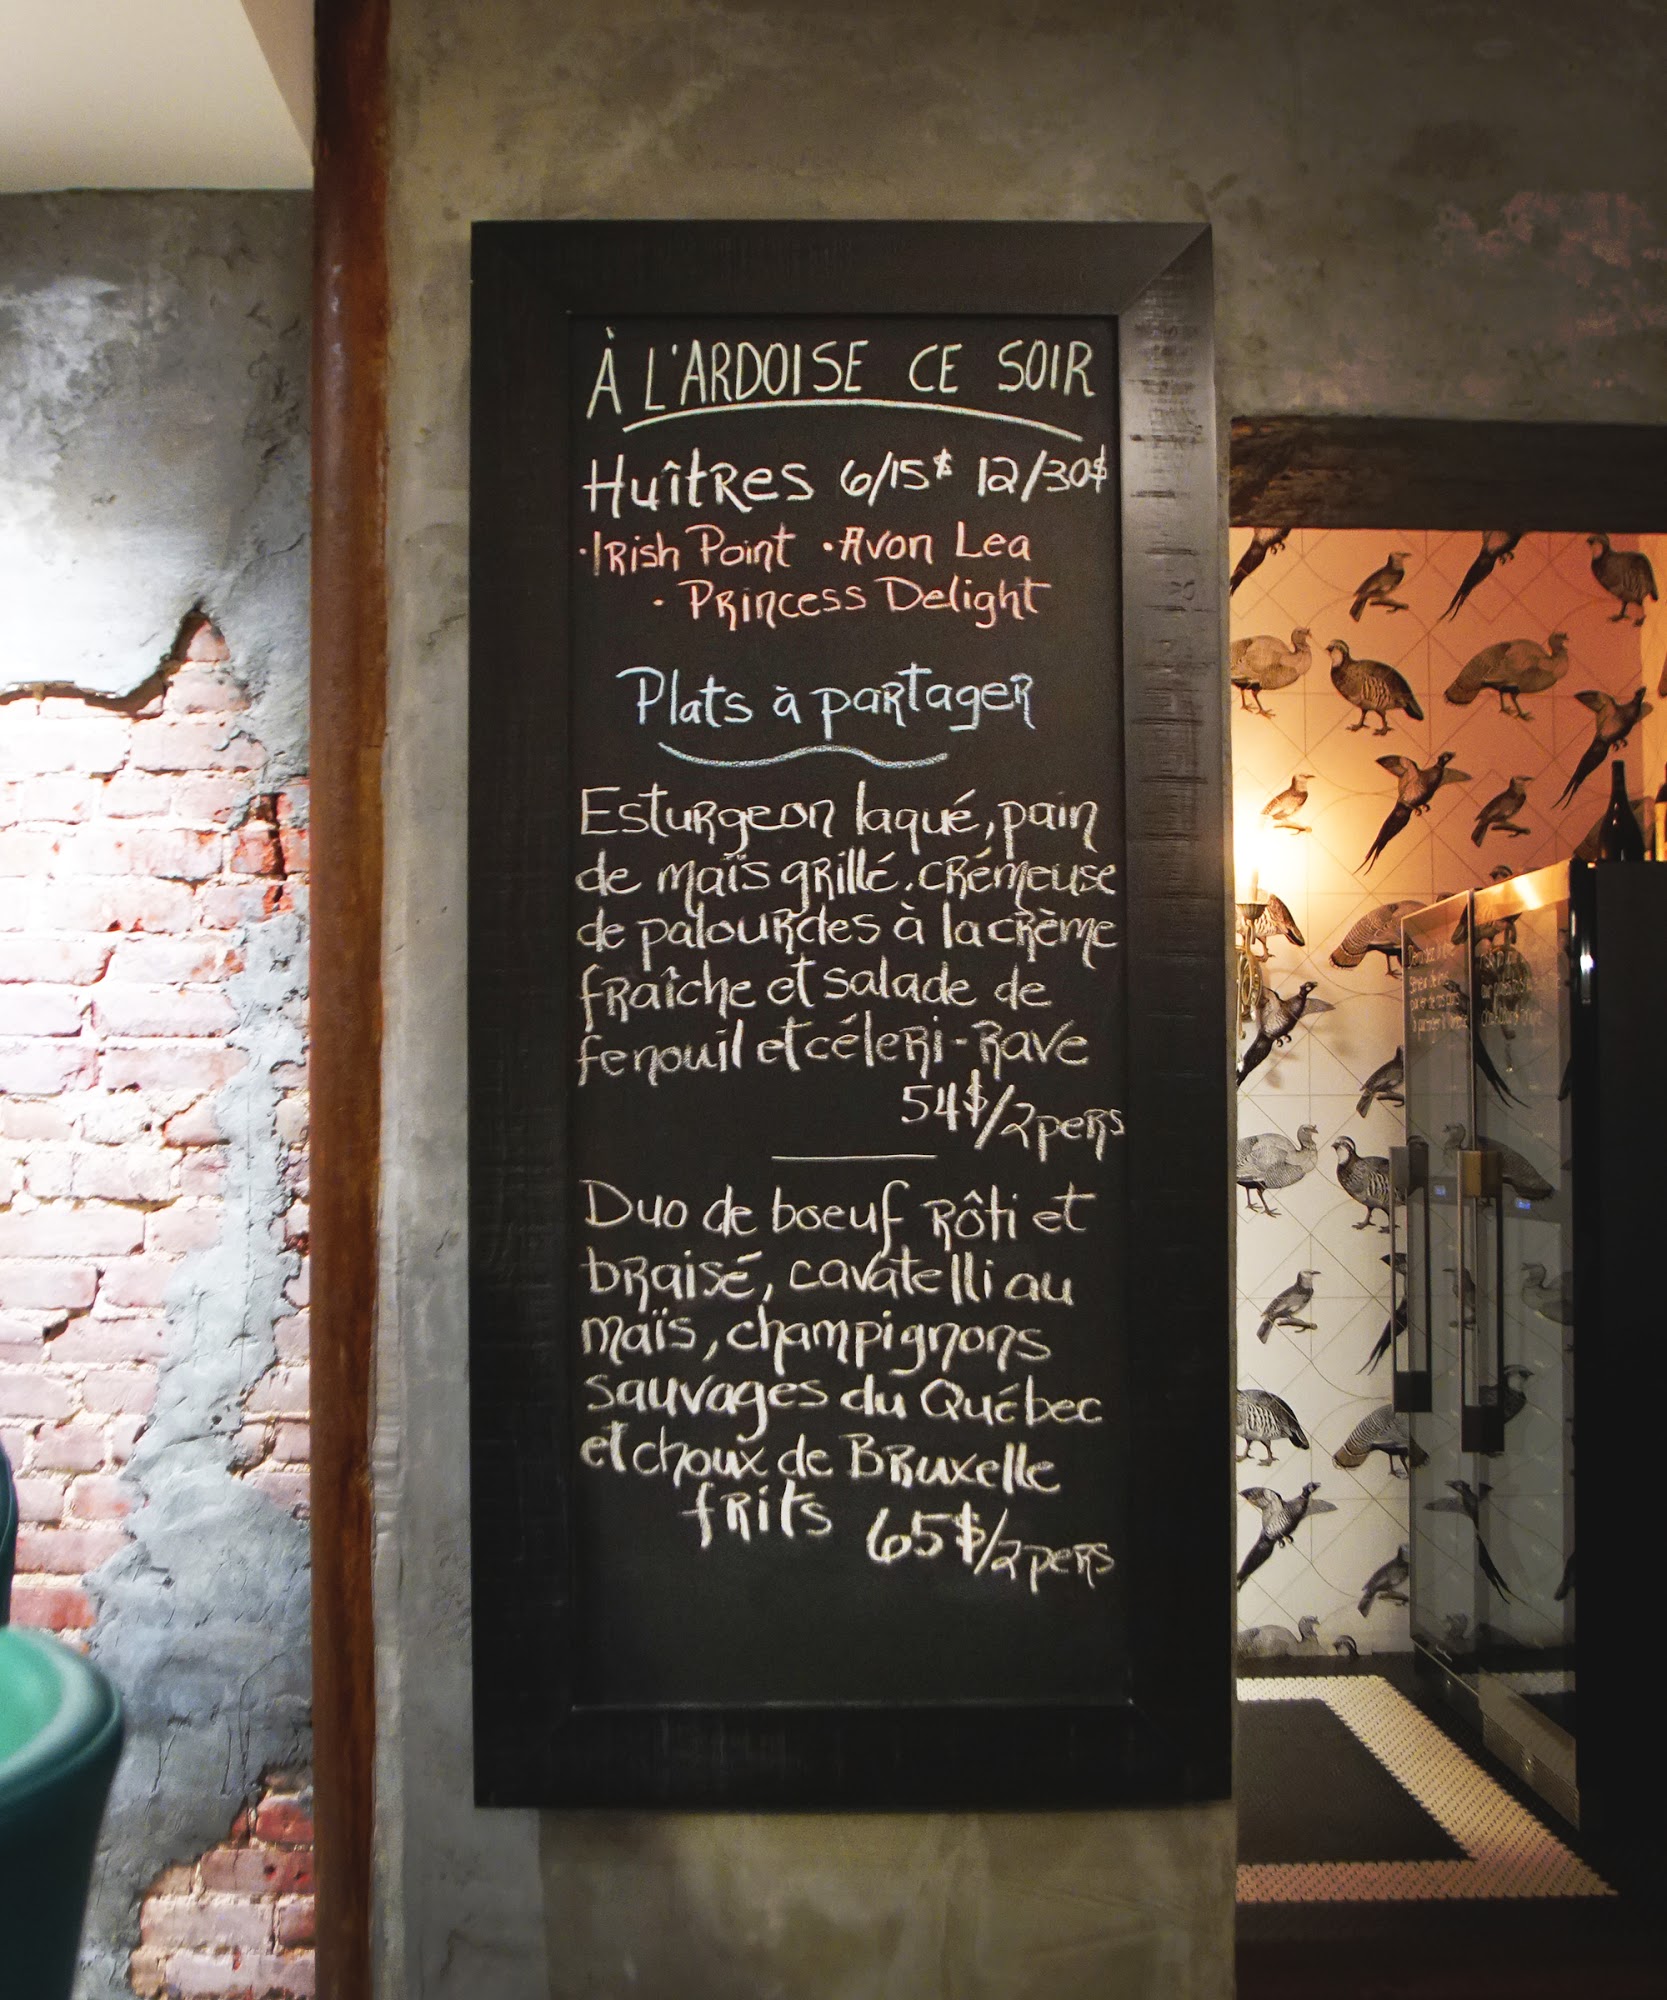 À L'ARDOISE CE SOIR
Huîtres 6/15$ 12/30$
·Irish Point ·Avon Lea
·Princess Delight
Plats à partager
Esturgeon laqué, pain
de maïs grillé, crémeuse
de palourdes à la crème
fraîche et salade de
fenouil et céleri-rave
54$/2pers
Duo de boeuf rôti et
braisé, cavatelli au
maïs, champignons
sauvages du Québec
et choux de Bruxelle
frits 65$/2pers